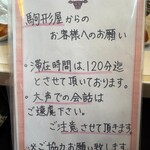 駒形屋からの
お客様へのお願い
◦滞在時間は、120分迄
とさせて頂いております。
◦大声での会話は
ご遠慮下さい。
ご注意させて頂きます。
※ご協力お願い致します